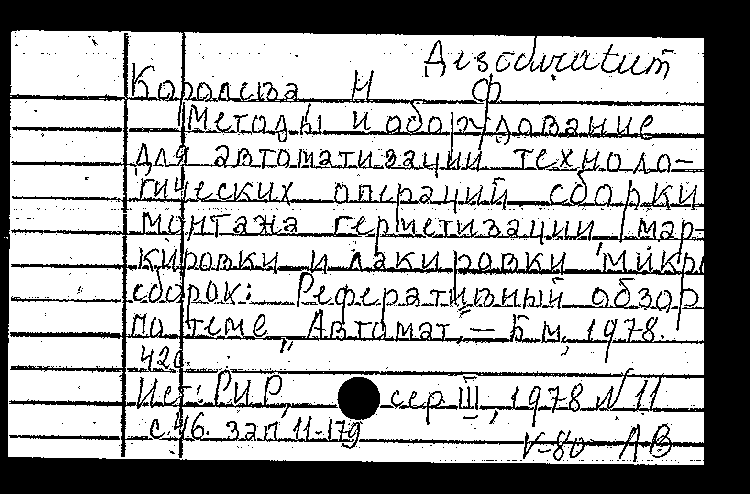 Дезodиratum
Королева Н Ф
Методы и оборудование
для автоматизации техноло-
гических операций сборки
монтажа герметизации, мар-
кировки и лакировки микро
сборок: Реферативный обзор
по теме „Автомат". – Б м, 1978.
42с.
Ист: РИР, сер III, 1978 N 11
с.46. зап 11-179
V-80 АВ